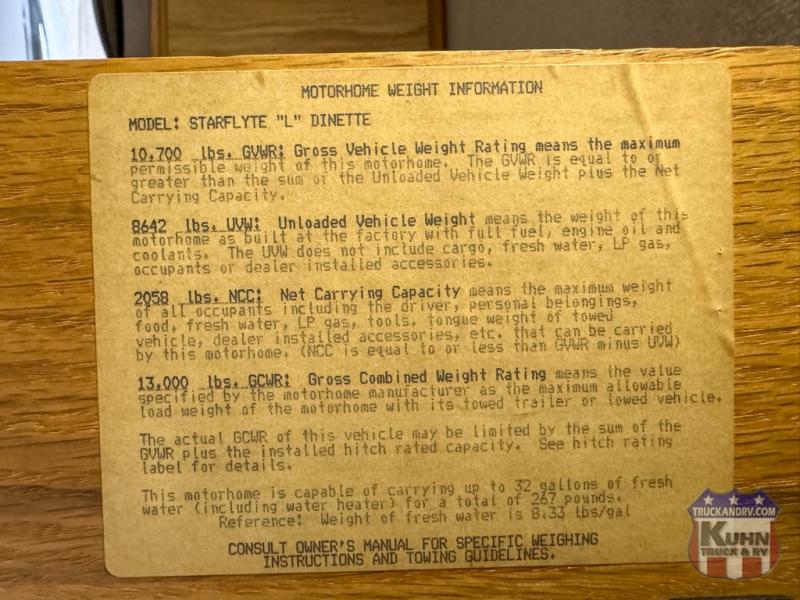 MOTORHOME WEIGHT INFORMATION
MODEL: STARFLYTE "L" DINETTE
10,700 lbs. GVWR: Gross Vehicle Weight Rating means the maximum
permissible weight of this motorhome. The GVWR is equal to or
greater than the sum of the Unloaded Vehicle Weight plus the Net
Carrying Capacity.
8642 lbs. UVW: Unloaded Vehicle Weight means the weight of this
motorhome as built at the factory with full fuel, engine oil and
coolants. The UVW does not include cargo, fresh water, LP gas,
occupants or dealer installed accessories.
2058 lbs. NCC: Net Carrying Capacity means the maximum weight
of all occupants including the driver, personal belongings,
food, fresh water, LP gas, tools, tongue weight of towed
vehicle, dealer installed accessories, etc. that can be carried
by this motorhome. (NCC is equal to or less than GVWR minus UVW)
13,000 lbs. GCWR: Gross Combined Weight Rating means the value
specified by the motorhome manufacturer as the maximum allowable
load weight of the motorhome with its towed trailer or towed vehicle.
The actual GCWR of this vehicle may be limited by the sum of the
GVWR plus the installed hitch rated capacity. See hitch rating
label for details.
This motorhome is capable of carrying up to 32 gallons of fresh
water (including water heater) for a total of 267 pounds.
Reference: Weight of fresh water is 8.33 lbs/gal
CONSULT OWNER'S MANUAL FOR SPECIFIC WEIGHING
INSTRUCTIONS AND TOWING GUIDELINES.
TRUCKANDRV.COM
KUHN
TRUCK & RV